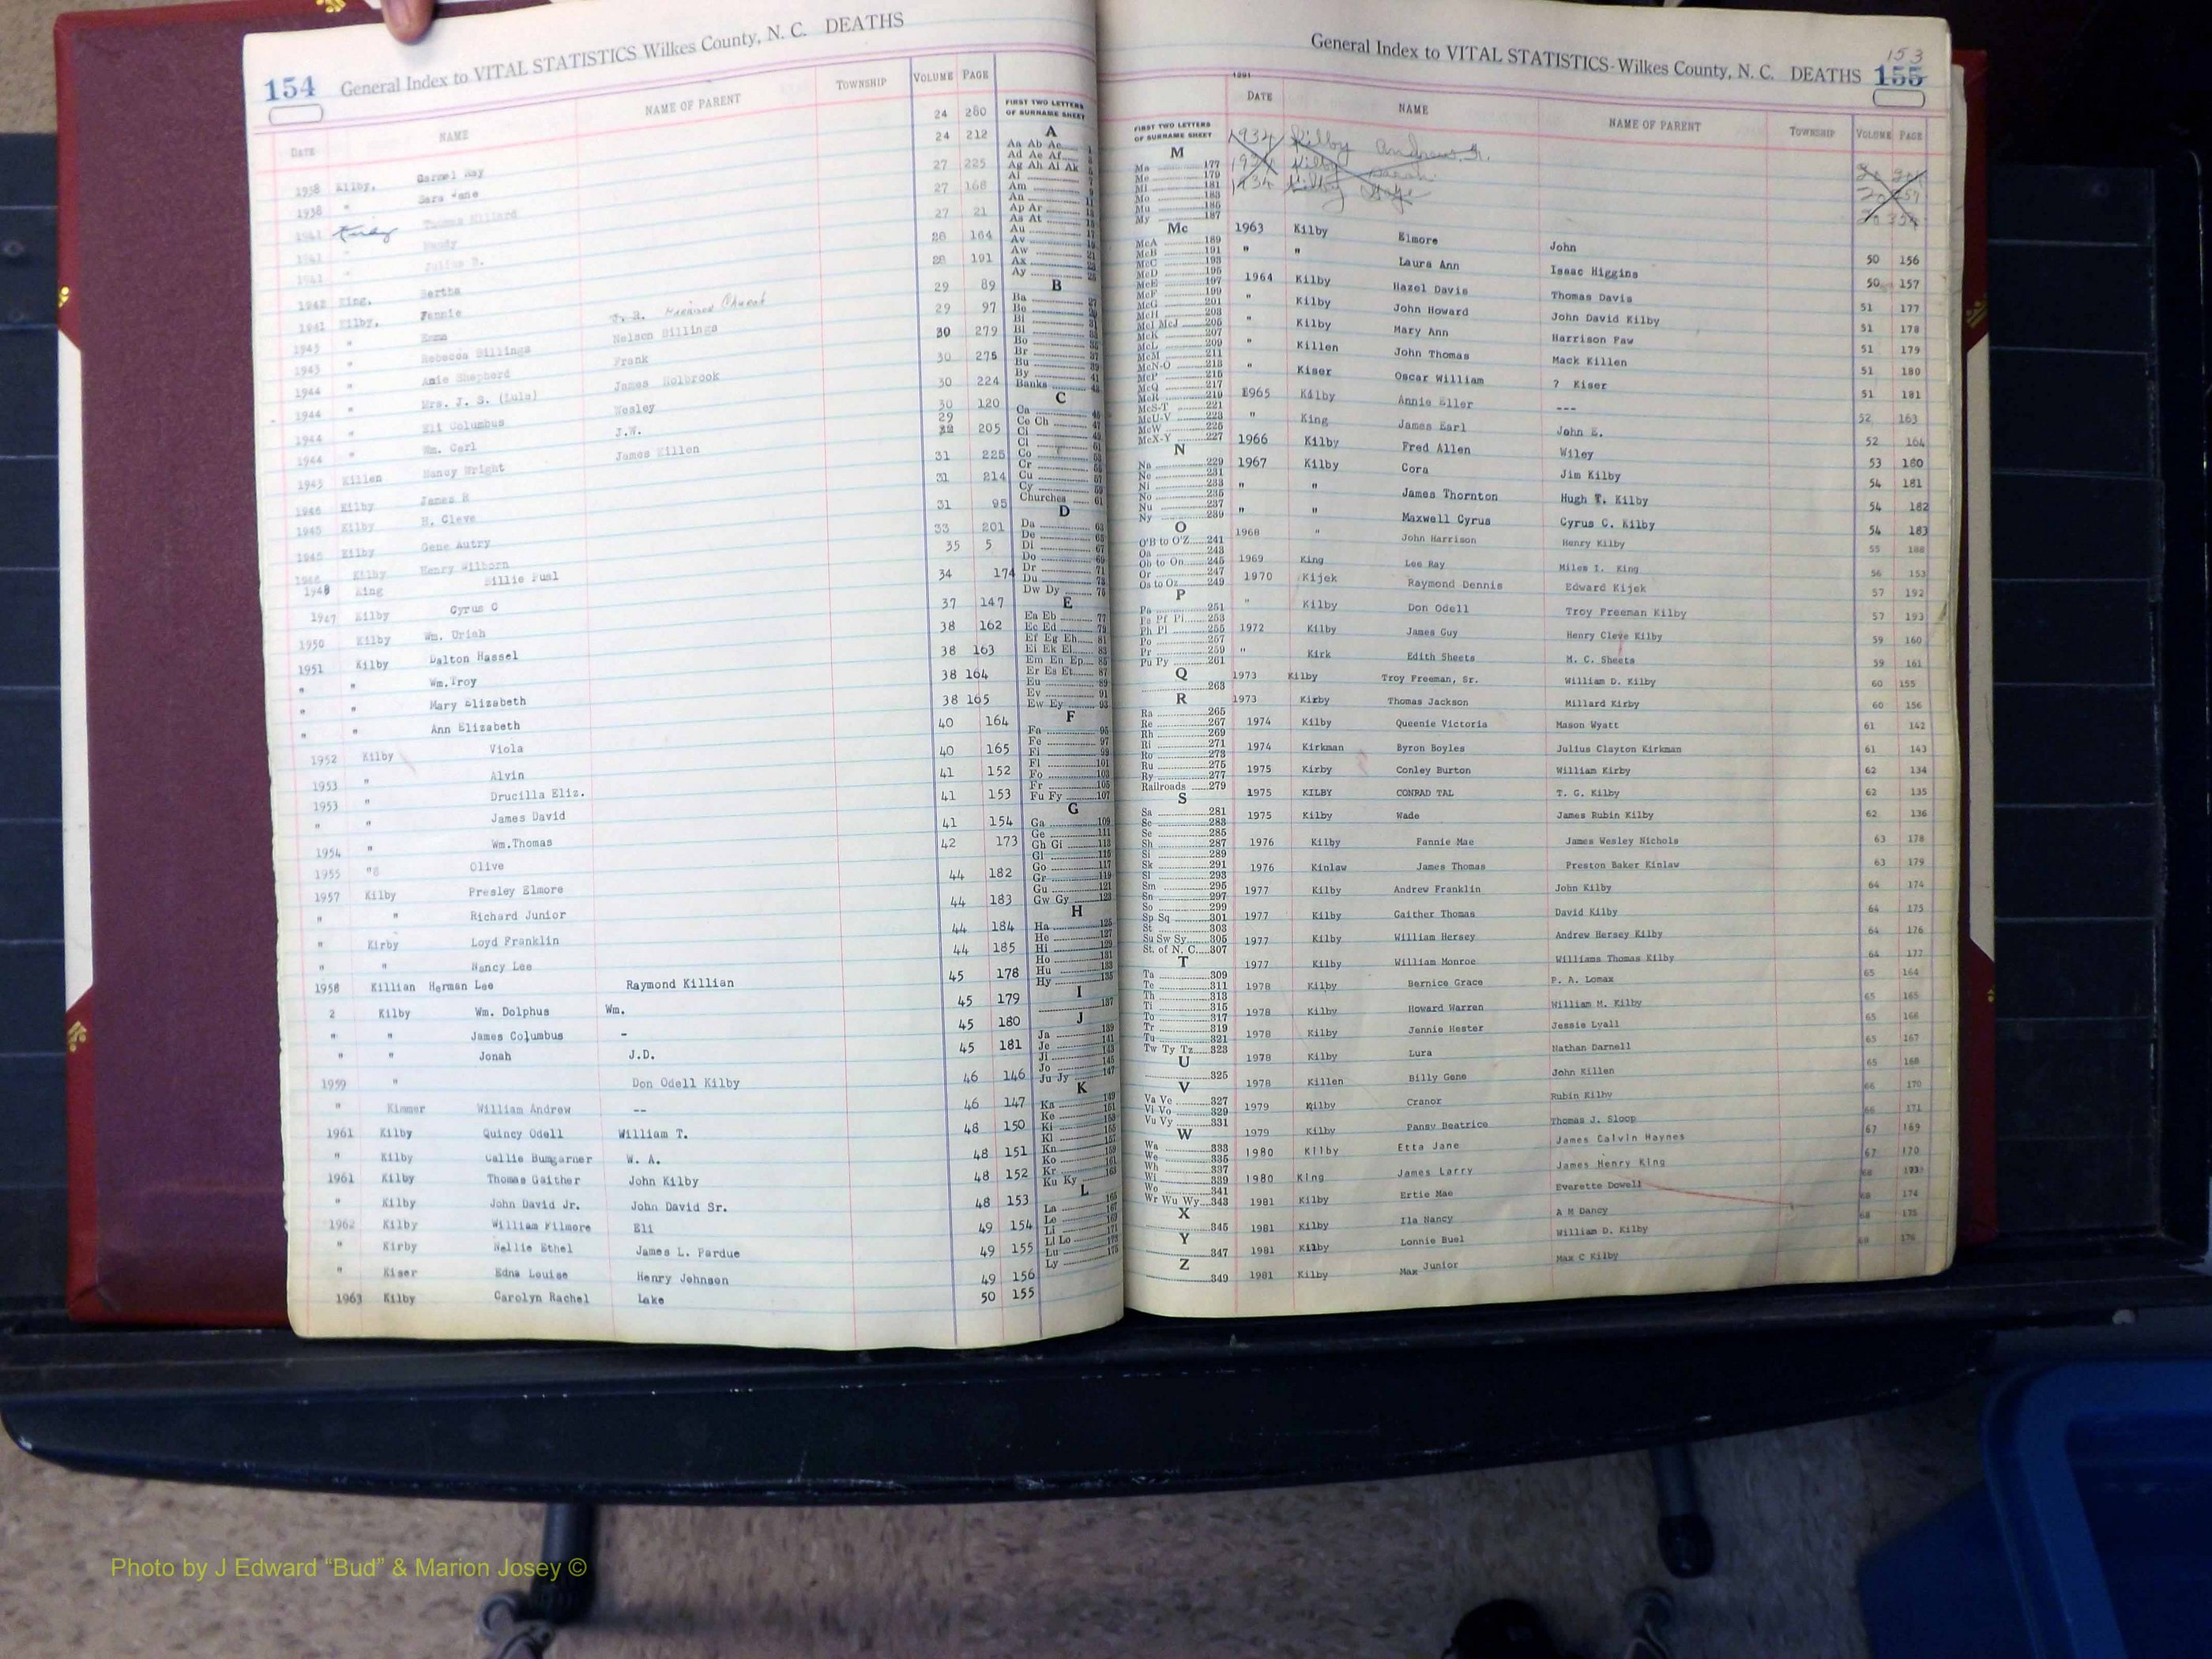 154 General Index to VITAL STATISTICS Wilkes County, N. C. DEATHS
DATE NAME NAME OF PARENT TOWNSHIP VOLUME PAGE
1938 Kilby, Carmel Ray 24 280
1938 " Sara Jane 24 212
1941 Thomas Millard 27 225
1941 " 27 168
1941 " Julius 27 21
1942 King, Bertha 28 164
1941 Kilby, Fennie 28 191
1943 " Emma 29 89
1943 " Rebecca Billings Nelson Billings 29 97
1944 " Amie Shepherd Frank 30 279
1944 " Mrs. J. S. (Lulo) James Holbrook 30 275
1944 " Eli Columbus Wesley 30 224
1944 " Wm. Carl J.W. 30 120
1943 Killen Nancy Wright James Killen 29 205
1946 Kilby James R 31 225
1945 Kilby H. Cleve 31 214
Kilby Gene Autry 31 95
Kilby Henry Wilborn 33 201
1948 King Billie Pual 35 5
1947 Kilby Cyrus C 34 174
1950 Kilby Wm. Uriah 37 147
1951 Kilby Dalton Hassel 38 162
" " Wm.Troy 38 163
" " Mary Elizabeth 38 164
" " Ann Elizabeth 38 165
1952 Kilby Viola 40 164
1953 " Alvin 40 165
1953 " Drucilla Eliz. 41 152
" " James David 41 153
1954 " Wm.Thomas 41 154
1955 " Olive 42 173
1957 Kilby Presley Elmore 44 182
" " Richard Junior 44 183
" Kirby Loyd Franklin 44 184
" " Nancy Lee 44 185
1958 Killian Herman Lee Raymond Killian 45 178
2 Kilby Wm. Dolphus Wm. 45 179
" " James Columbus - 45 180
" " Jonah J.D. 45 181
1959 " Don Odell Kilby 46 146
" Kimmer William Andrew -- 46 147
1961 Kilby Quincy Odell William T. 48 150
" Kilby Callie Bumgarner W. A. 48 151
1961 Kilby Thomas Gaither John Kilby 48 152
" Kilby John David Jr. John David Sr. 48 153
1962 Kilby William Filmore Eli 49 154
" Kirby Nellie Ethel James L. Pardue 49 155
" Kiser Edna Louise Henry Johnson 49 156
1963 Kilby Carolyn Rachel Lake 50 155
FIRST TWO LETTERS
OF SURNAME SHEET
A
Aa Ab Ac
Ad Ae Af
Ag Ah Ai Ak
Al
Am
An
Ap Ar
As At
Au
Av
Aw
Ax
Ay
B
Ba
Be
Bi
Bl
Bo
Br
Bu
By
Banks
C
Ca
Ce Ch
Ci
Cl
Co
Cr
Cu
Cy
Churches 61
D
Da 63
De 65
Di 67
Do 69
Dr 71
Du 73
Dw Dy 75
E
Ea Eb 77
Ec Ed 79
Ef Eg Eh 81
Ei Ek El 83
Em En Ep 85
Er Es Et 87
Eu 89
Ev 91
Ew Ey 93
F
Fa 95
Fe 97
Fi 99
Fl 101
Fo 103
Fr 105
Fu Fy 107
G
Ga 109
Ge 111
Gh Gi 113
Gl 115
Go 117
Gr 119
Gu 121
Gw Gy 123
H
Ha 125
He 127
Hi 129
Ho 131
Hu 133
Hy 135
I
137
J
Ja 139
Je 141
Ji 143
Jo 145
Ju Jy 147
K
Ka 149
Ke 151
Ki 153
Kl 155
Kn 157
Ko 159
Kr 161
Ku Ky 163
L
La 165
Le 167
Li 169
Ll Lo 171
Lu 173
Ly 175
General Index to VITAL STATISTICS-Wilkes County, N. C. DEATHS 155
153
FIRST TWO LETTERS
OF SURNAME SHEET
M
Ma 177
Me 179
Mi 181
Mo 183
Mu 185
My 187
Mc
McA 189
McB 191
McC 193
McD 195
McE 197
McF 199
McG 201
McH 203
McI McJ 205
McK 207
McL 209
McM 211
McN-O 213
McP 215
McQ 217
McR 219
McS-T 221
McU-V 223
McW 225
McX-Y 227
N
Na 229
Ne 231
Ni 233
No 235
Nu 237
Ny 239
O
O'B to O'Z 241
Oa 243
Ob to On 245
Or 247
Os to Oz 249
P
Pa 251
Pe Pf Pi 253
Ph Pl 255
Po 257
Pr 259
Pu Py 261
Q
263
R
Ra 265
Re 267
Rh 269
Ri 271
Ro 273
Ru 275
Ry 277
Railroads 279
S
Sa 281
Sc 283
Se 285
Sh 287
Si 289
Sk 291
Sl 293
Sm 295
Sn 297
So 299
Sp Sq 301
St 303
Su Sw Sy 305
St. of N. C. 307
T
Ta 309
Te 311
Th 313
Ti 315
To 317
Tr 319
Tu 321
Tw Ty Tz 323
U
325
V
Va Ve 327
Vi Vo 329
Vu Vy 331
W
Wa 333
We 335
Wh 337
Wi 339
Wo 341
Wr Wu Wy 343
X
345
Y
347
Z
349
DATE NAME NAME OF PARENT TOWNSHIP VOLUME PAGE
1934 Kilby Andrew Jr.
1934 Kilby Sarah
1934 Kilby
1963 Kilby Elmore John 50 156
" " Laura Ann Isaac Higgins 50 157
1964 Kilby Hazel Davis Thomas Davis 51 177
" Kilby John Howard John David Kilby 51 178
" Kilby Mary Ann Harrison Faw 51 179
" Killen John Thomas Mack Killen 51 180
" Kiser Oscar William ? Kiser 51 181
1965 Kilby Annie Eller --- 52 163
" King James Earl John E. 52 164
1966 Kilby Fred Allen Wiley 53 180
1967 Kilby Cora Jim Kilby 54 181
" " James Thornton Hugh T. Kilby 54 182
" " Maxwell Cyrus Cyrus C. Kilby 54 183
1968 " John Harrison Henry Kilby 55 188
1969 King Lee Ray Miles I. King 56 153
1970 Kijek Raymond Dennis Edward Kijek 57 192
" Kilby Don Odell Troy Freeman Kilby 57 193
1972 Kilby James Guy Henry Cleve Kilby 59 160
" Kirk Edith Sheets M. C. Sheets 59 161
1973 Kilby Troy Freeman, Sr. William D. Kilby 60 155
1973 Kirby Thomas Jackson Millard Kirby 60 156
1974 Kilby Queenie Victoria Mason Wyatt 61 142
1974 Kirkman Byron Boyles Julius Clayton Kirkman 61 143
1975 Kirby Conley Burton William Kirby 62 134
1975 KILBY CONRAD TAL T. G. Kilby 62 135
1975 Kilby Wade James Rubin Kilby 62 136
1976 Kilby Fannie Mae James Wesley Nichols 63 178
1976 Kinlaw James Thomas Preston Baker Kinlaw 63 179
1977 Kilby Andrew Franklin John Kilby 64 174
1977 Kilby Gaither Thomas David Kilby 64 175
1977 Kilby William Hersey Andrew Hersey Kilby 64 176
1977 Kilby William Monroe Williams Thomas Kilby 64 177
1978 Kilby Bernice Grace P. A. Lomax 65 164
1978 Kilby Howard Warren William M. Kilby 65 165
1978 Kilby Jennie Hester Jessie Lyall 65 166
1978 Kilby Lura Nathan Darnell 65 167
1978 Killen Billy Gene John Killen 65 168
1979 Kilby Cranor Rubin Kilby 66 170
1979 Kilby Pansy Beatrice Thomas J. Sloop 66 171
1980 Kilby Etta Jane James Calvin Haynes 67 169
1980 King James Larry James Henry King 67 170
1981 Kilby Ertie Mae Everette Dowell 68
1981 Kilby Ila Nancy A M Dancy 68 174
1981 Kilby Lonnie Buel William D. Kilby 68 175
1981 Kilby Max Junior Max C Kilby 68 176
Photo by J Edward “Bud” & Marion Josey ©